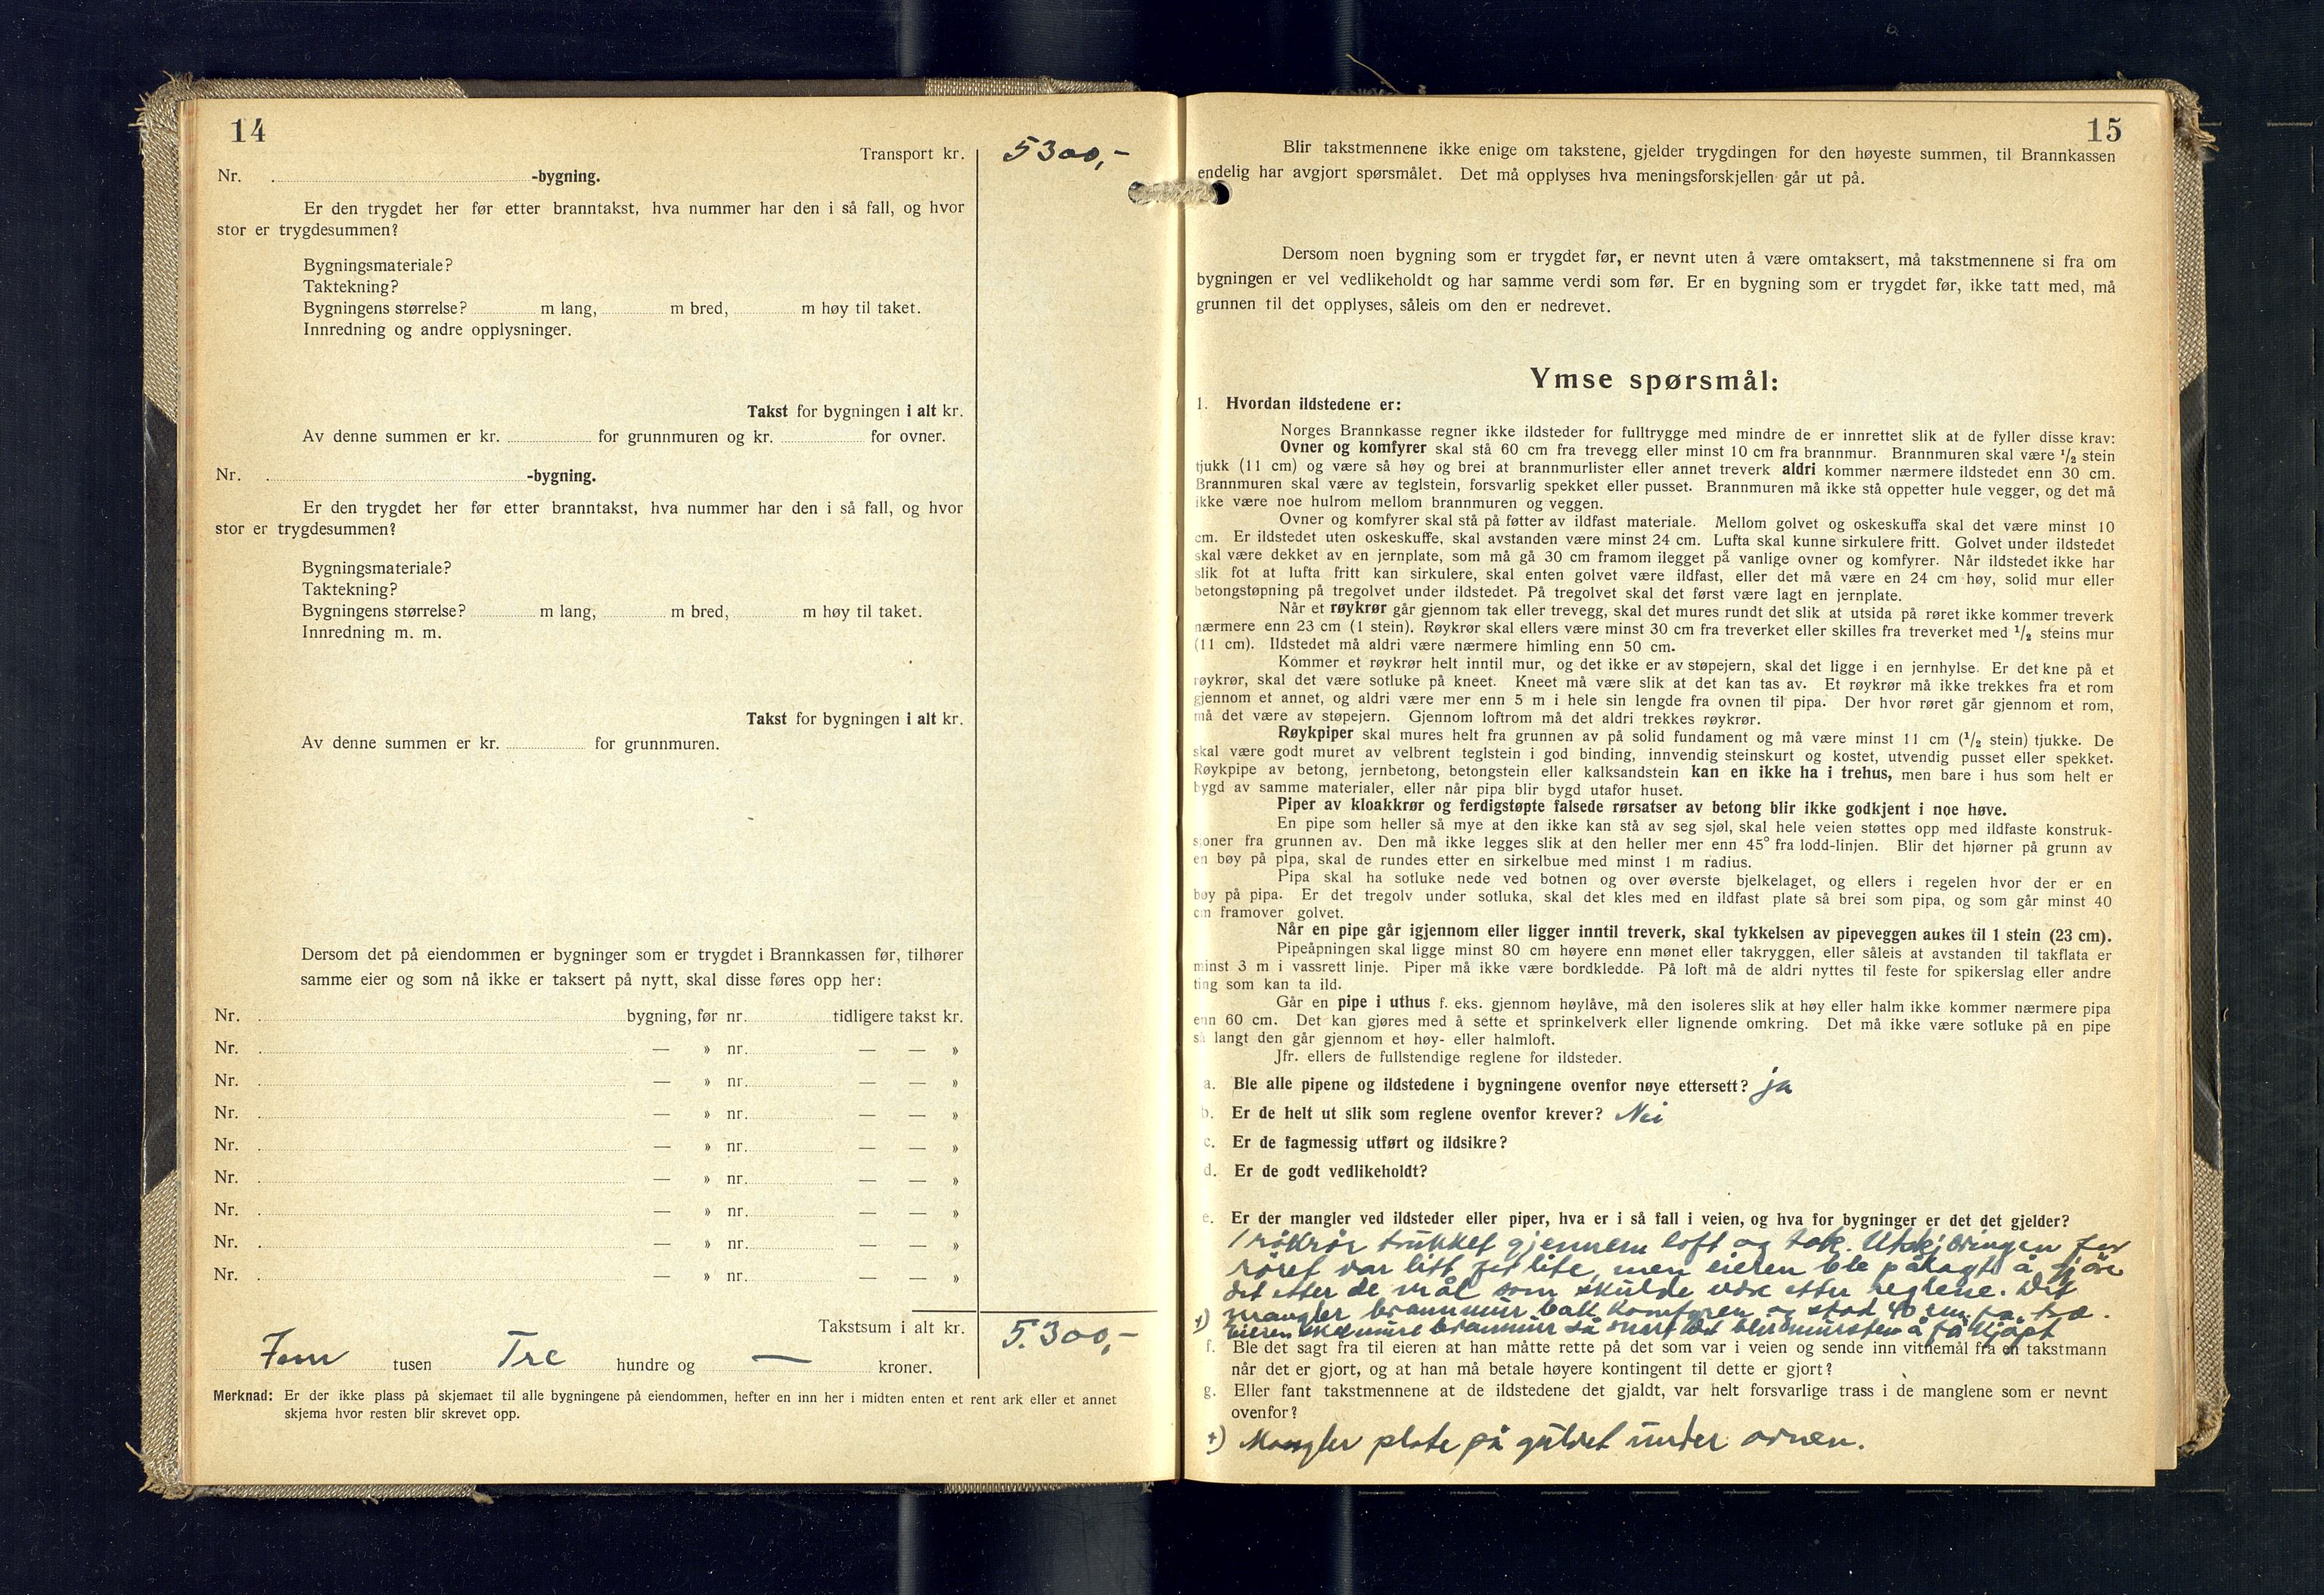 14
Transport kr. 5300,-
Nr. -bygning.
Er den trygdet her før etter branntakst, hva nummer har den i så fall, og hvor
stor er trygdesummen?
Bygningsmateriale?
Taktekning?
Bygningens størrelse? m lang, m bred, m høy til taket.
Innredning og andre opplysninger.
Takst for bygningen i alt kr.
Av denne summen er kr. for grunnmuren og kr. for ovner.
Nr. -bygning.
Er den trygdet her før etter branntakst, hva nummer har den i så fall, og hvor
stor er trygdesummen?
Bygningsmateriale?
Taktekning?
Bygningens størrelse? m lang, m bred, m høy til taket.
Innredning m. m.
Takst for bygningen i alt kr.
Av denne summen er kr. for grunnmuren.
Dersom det på eiendommen er bygninger som er trygdet i Brannkassen før, tilhører
samme eier og som nå ikke er taksert på nytt, skal disse føres opp her:
Nr. bygning, før nr. tidligere takst kr.
Nr. — » nr. — — »
Nr. — » nr. — — »
Nr. — » nr. — — »
Nr. — » nr. — — »
Nr. — » nr. — — »
Nr. — » nr. — — »
Nr. — » nr. — — »
Nr. — » nr. — — »
Takstsum i alt kr. 5.300,-
Fem tusen Tre hundre og — kroner.
Merknad: Er der ikke plass på skjemaet til alle bygningene på eiendommen, hefter en inn her i midten enten et rent ark eller et annet
skjema hvor resten blir skrevet opp.
15
Blir takstmennene ikke enige om takstene, gjelder trygdingen for den høyeste summen, til Brannkassen
endelig har avgjort spørsmålet. Det må opplyses hva meningsforskjellen går ut på.
Dersom noen bygning som er trygdet før, er nevnt uten å være omtaksert, må takstmennene si fra om
bygningen er vel vedlikeholdt og har samme verdi som før. Er en bygning som er trygdet før, ikke tatt med, må
grunnen til det opplyses, såleis om den er nedrevet.
Ymse spørsmål:
1. Hvordan ildstedene er:
Norges Brannkasse regner ikke ildsteder for fulltrygge med mindre de er innrettet slik at de fyller disse krav:
Ovner og komfyrer skal stå 60 cm fra trevegg eller minst 10 cm fra brannmur. Brannmuren skal være 1/2 stein
tjukk (11 cm) og være så høy og brei at brannmurlister eller annet treverk aldri kommer nærmere ildstedet enn 30 cm.
Brannmuren skal være av teglstein, forsvarlig spekket eller pusset. Brannmuren må ikke stå oppetter hule vegger, og det må
ikke være noe hulrom mellom brannmuren og veggen.
Ovner og komfyrer skal stå på føtter av ildfast materiale. Mellom golvet og oskeskuffa skal det være minst 10
cm. Er ildstedet uten oskeskuffe, skal avstanden være minst 24 cm. Lufta skal kunne sirkulere fritt. Golvet under ildstedet
skal være dekket av en jernplate, som må gå 30 cm framom ilegget på vanlige ovner og komfyrer. Når ildstedet ikke har
slik fot at lufta fritt kan sirkulere, skal enten golvet være ildfast, eller det må være en 24 cm høy, solid mur eller
betongstøpning på tregolvet under ildstedet. På tregolvet skal det først være lagt en jernplate.
Når et røykrør går gjennom tak eller trevegg, skal det mures rundt det slik at utsida på røret ikke kommer treverk
nærmere enn 23 cm (1 stein). Røykrør skal ellers være minst 30 cm fra treverket eller skilles fra treverket med 1/2 steins mur
(11 cm). Ildstedet må aldri være nærmere himling enn 50 cm.
Kommer et røykrør helt inntil mur, og det ikke er av støpejern, skal det ligge i en jernhylse. Er det kne på et
røykrør, skal det være sotluke på kneet. Kneet må være slik at det kan tas av. Et røykrør må ikke trekkes fra et rom
gjennom et annet, og aldri være mer enn 5 m i hele sin lengde fra ovnen til pipa. Der hvor røret går gjennom et rom,
må det være av støpejern. Gjennom loftrom må det aldri trekkes røykrør.
Røykpiper skal mures helt fra grunnen av på solid fundament og må være minst 11 cm (1/2 stein) tjukke. De
skal være godt muret av velbrent teglstein i god binding, innvendig steinskurt og kostet, utvendig pusset eller spekket.
Røykpipe av betong, jernbetong, betongstein eller kalksandstein kan en ikke ha i trehus, men bare i hus som helt er
bygd av samme materialer, eller når pipa blir bygd utafor huset.
Piper av kloakkrør og ferdigstøpte falsede rørsatser av betong blir ikke godkjent i noe høve.
En pipe som heller så mye at den ikke kan stå av seg sjøl, skal hele veien støttes opp med ildfaste konstruk-
sjoner fra grunnen av. Den må ikke legges slik at den heller mer enn 45° fra lodd-linjen. Blir det hjørner på grunn av
en bøy på pipa, skal de rundes etter en sirkelbue med minst 1 m radius.
Pipa skal ha sotluke nede ved botnen og over øverste bjelkelaget, og ellers i regelen hvor der er en
bøy på pipa. Er det tregolv under sotluka, skal det kles med en ildfast plate så brei som pipa, og som går minst 40
cm framover golvet.
Når en pipe går igjennom eller ligger inntil treverk, skal tykkelsen av pipeveggen aukes til 1 stein (23 cm).
Pipeåpningen skal ligge minst 80 cm høyere enn mønet eller takryggen, eller såleis at avstanden til takflata er
minst 3 m i vassrett linje. Piper må ikke være bordkledde. På loft må de aldri nyttes til feste for spikerslag eller andre
ting som kan ta ild.
Går en pipe i uthus f. eks. gjennom høylåve, må den isoleres slik at høy eller halm ikke kommer nærmere pipa
enn 60 cm. Det kan gjøres med å sette et sprinkelverk eller lignende omkring. Det må ikke være sotluke på en pipe
så langt den går gjennom et høy- eller halmloft.
Jfr. ellers de fullstendige reglene for ildsteder.
a. Ble alle pipene og ildstedene i bygningene ovenfor nøye ettersett? ja
b. Er de helt ut slik som reglene ovenfor krever? Nei
c. Er de fagmessig utført og ildsikre?
d. Er de godt vedlikeholdt?
e. Er der mangler ved ildsteder eller piper, hva er i så fall i veien, og hva for bygninger er det det gjelder?
1 rökrör trukket gjennem loft og tak. Utskjæringen for
röret var litt for lite, men eieren ble pålagt å gjöre
det etter de mål som skulde være etter reglene. Det
+) mangler brannmur bak komfyren og stod 40 cm. fra træ.
Eieren skal mure brannmur så snart det blir mursten å få kjöpt
f. Ble det sagt fra til eieren at han måtte rette på det som var i veien og sende inn vitnemål fra en takstmann
når det er gjort, og at han må betale høyere kontingent til dette er gjort?
g. Eller fant takstmennene at de ildstedene det gjaldt, var helt forsvarlige trass i de manglene som er nevnt
ovenfor?
+) Mangler plate på gulvet under ovnen.